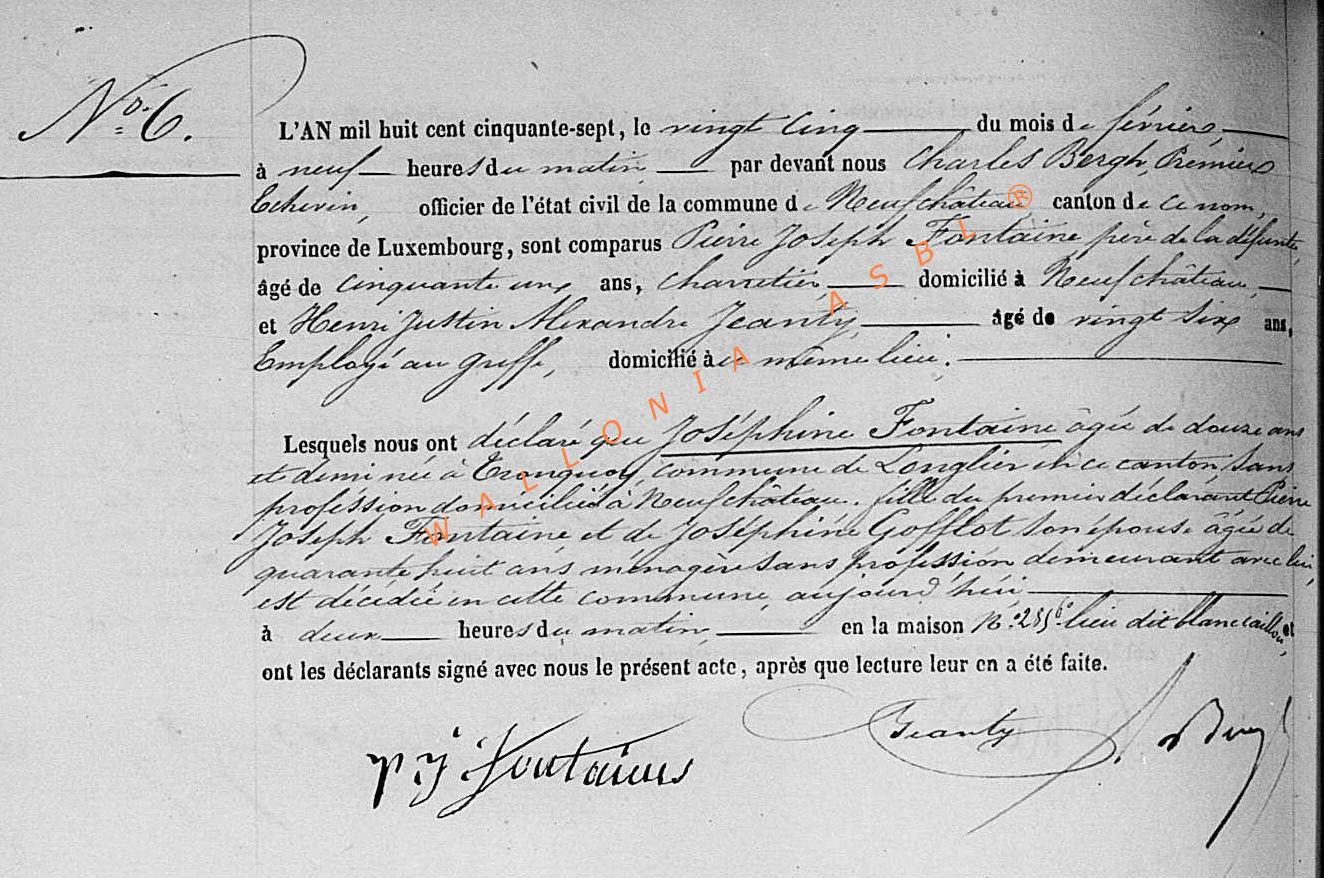 N° 6.
L'AN mil huit cent cinquante-sept, le vingt cinq du mois de février,
à neuf heures du matin, par devant nous Charles Bergh, Premier
Echevin, officier de l'état civil de la commune de Neufchâteau, canton de ce nom,
province de Luxembourg, sont comparus Pierre Joseph Fontaine père de la défunte,
âgé de cinquante un ans, charretier, domicilié à Neufchâteau,
et Henri Justin Alexandre Jeanty, âgé de vingt six ans,
Employé au greffe, domicilié au même lieu.
Lesquels nous ont déclaré que Joséphine Fontaine âgée de douze ans
et demi née à Tronquoy, commune de Longlier en ce canton, sans
profession domiciliée à Neufchâteau. fille du premier déclarant Pierre
Joseph Fontaine, et de Joséphine Gofflot son épouse âgée de
quarante huit ans, ménagère sans profession demeurant avec lui,
est décédée en cette commune, aujourd'hui
à deux heures du matin, en la maison N° lieu dit et
ont les déclarants signé avec nous le présent acte, après que lecture leur en a été faite.
Jeanty
p j fontaine
WALLONIA ASBL ®